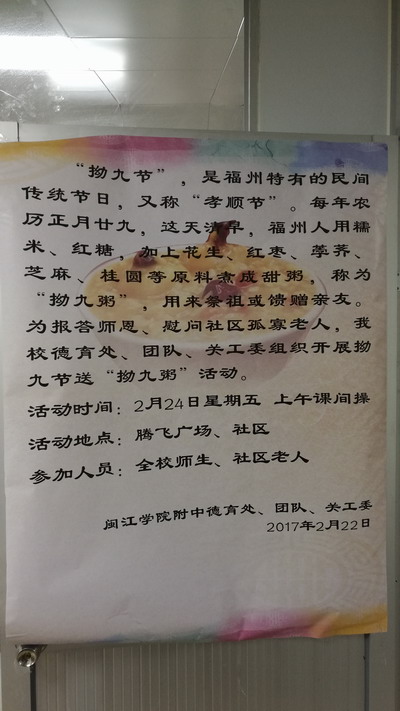 “拗九节”，是福州特有的民间
传统节日，又称“孝顺节”。每年农
历正月廿九，这天清早，福州人用糯
米、红糖，加上花生、红枣、荸荠、
芝麻、桂圆等原料煮成甜粥，称为
“拗九粥”，用来祭祖或馈赠亲友。
为报答师恩、慰问社区孤寡老人，我
校德育处、团队、关工委组织开展拗
九节送“拗九粥”活动。
活动时间：2月24日星期五 上午课间操
活动地点：腾飞广场、社区
参加人员：全校师生、社区老人
闽江学院附中德育处、团队、关工委
2017年2月22日